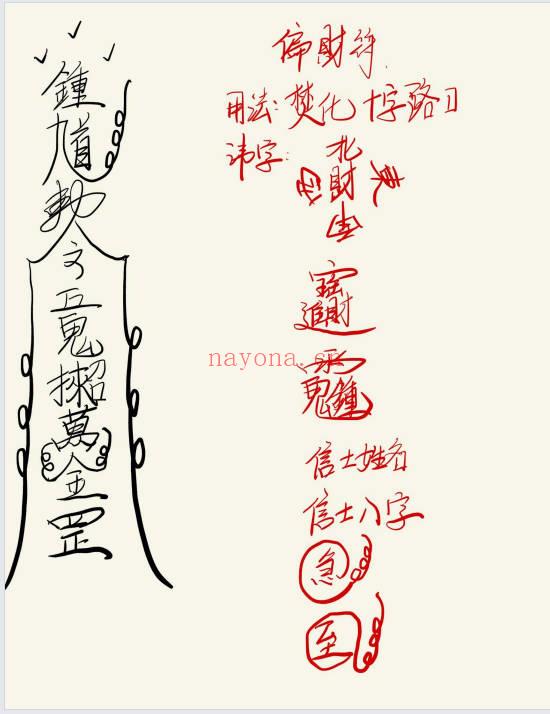 鍾馗勅令五鬼招萬金罡
偏財符
用法:焚化十字路口
讳字:
北
財
東
進財
鬼鍾
信士姓名
信士八字
急
至
nayona.cn